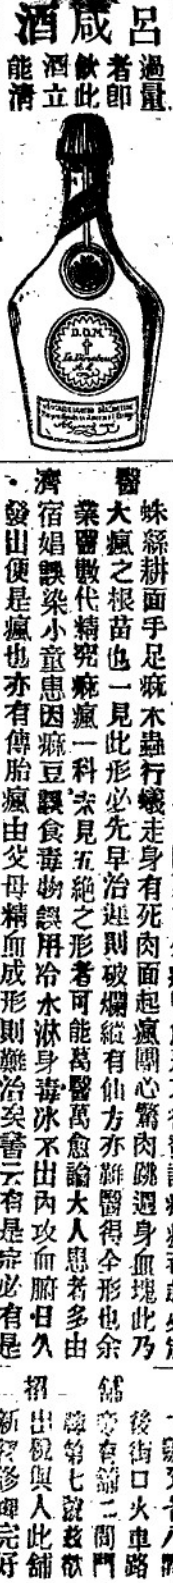 呂 酒
過量
者即
飲此
酒立
能清
D.O.M.
醫
濟
蛛絲耕面手足痲木蟲行蟻走身有死肉面起瘋團心驚肉跳週身血塊此乃
大瘋之根苗也一見此形必先早治遲則破爛縱有仙方亦難醫得全形也余
業醫數代精究痲瘋一科未見五絕之形者可能萬醫萬愈論大人患者多由
宿娼誤染小童患因痲豆誤食毒物誤用冷水淋身毒冰不出內攻而腑日久
發出便是瘋也亦有傳胎瘋由父母精血成形則難治矣書云有是症必有是
舖
招
後街口火車路
有舖二間門
第七號茲欲
出租與人此舖
新修理完好